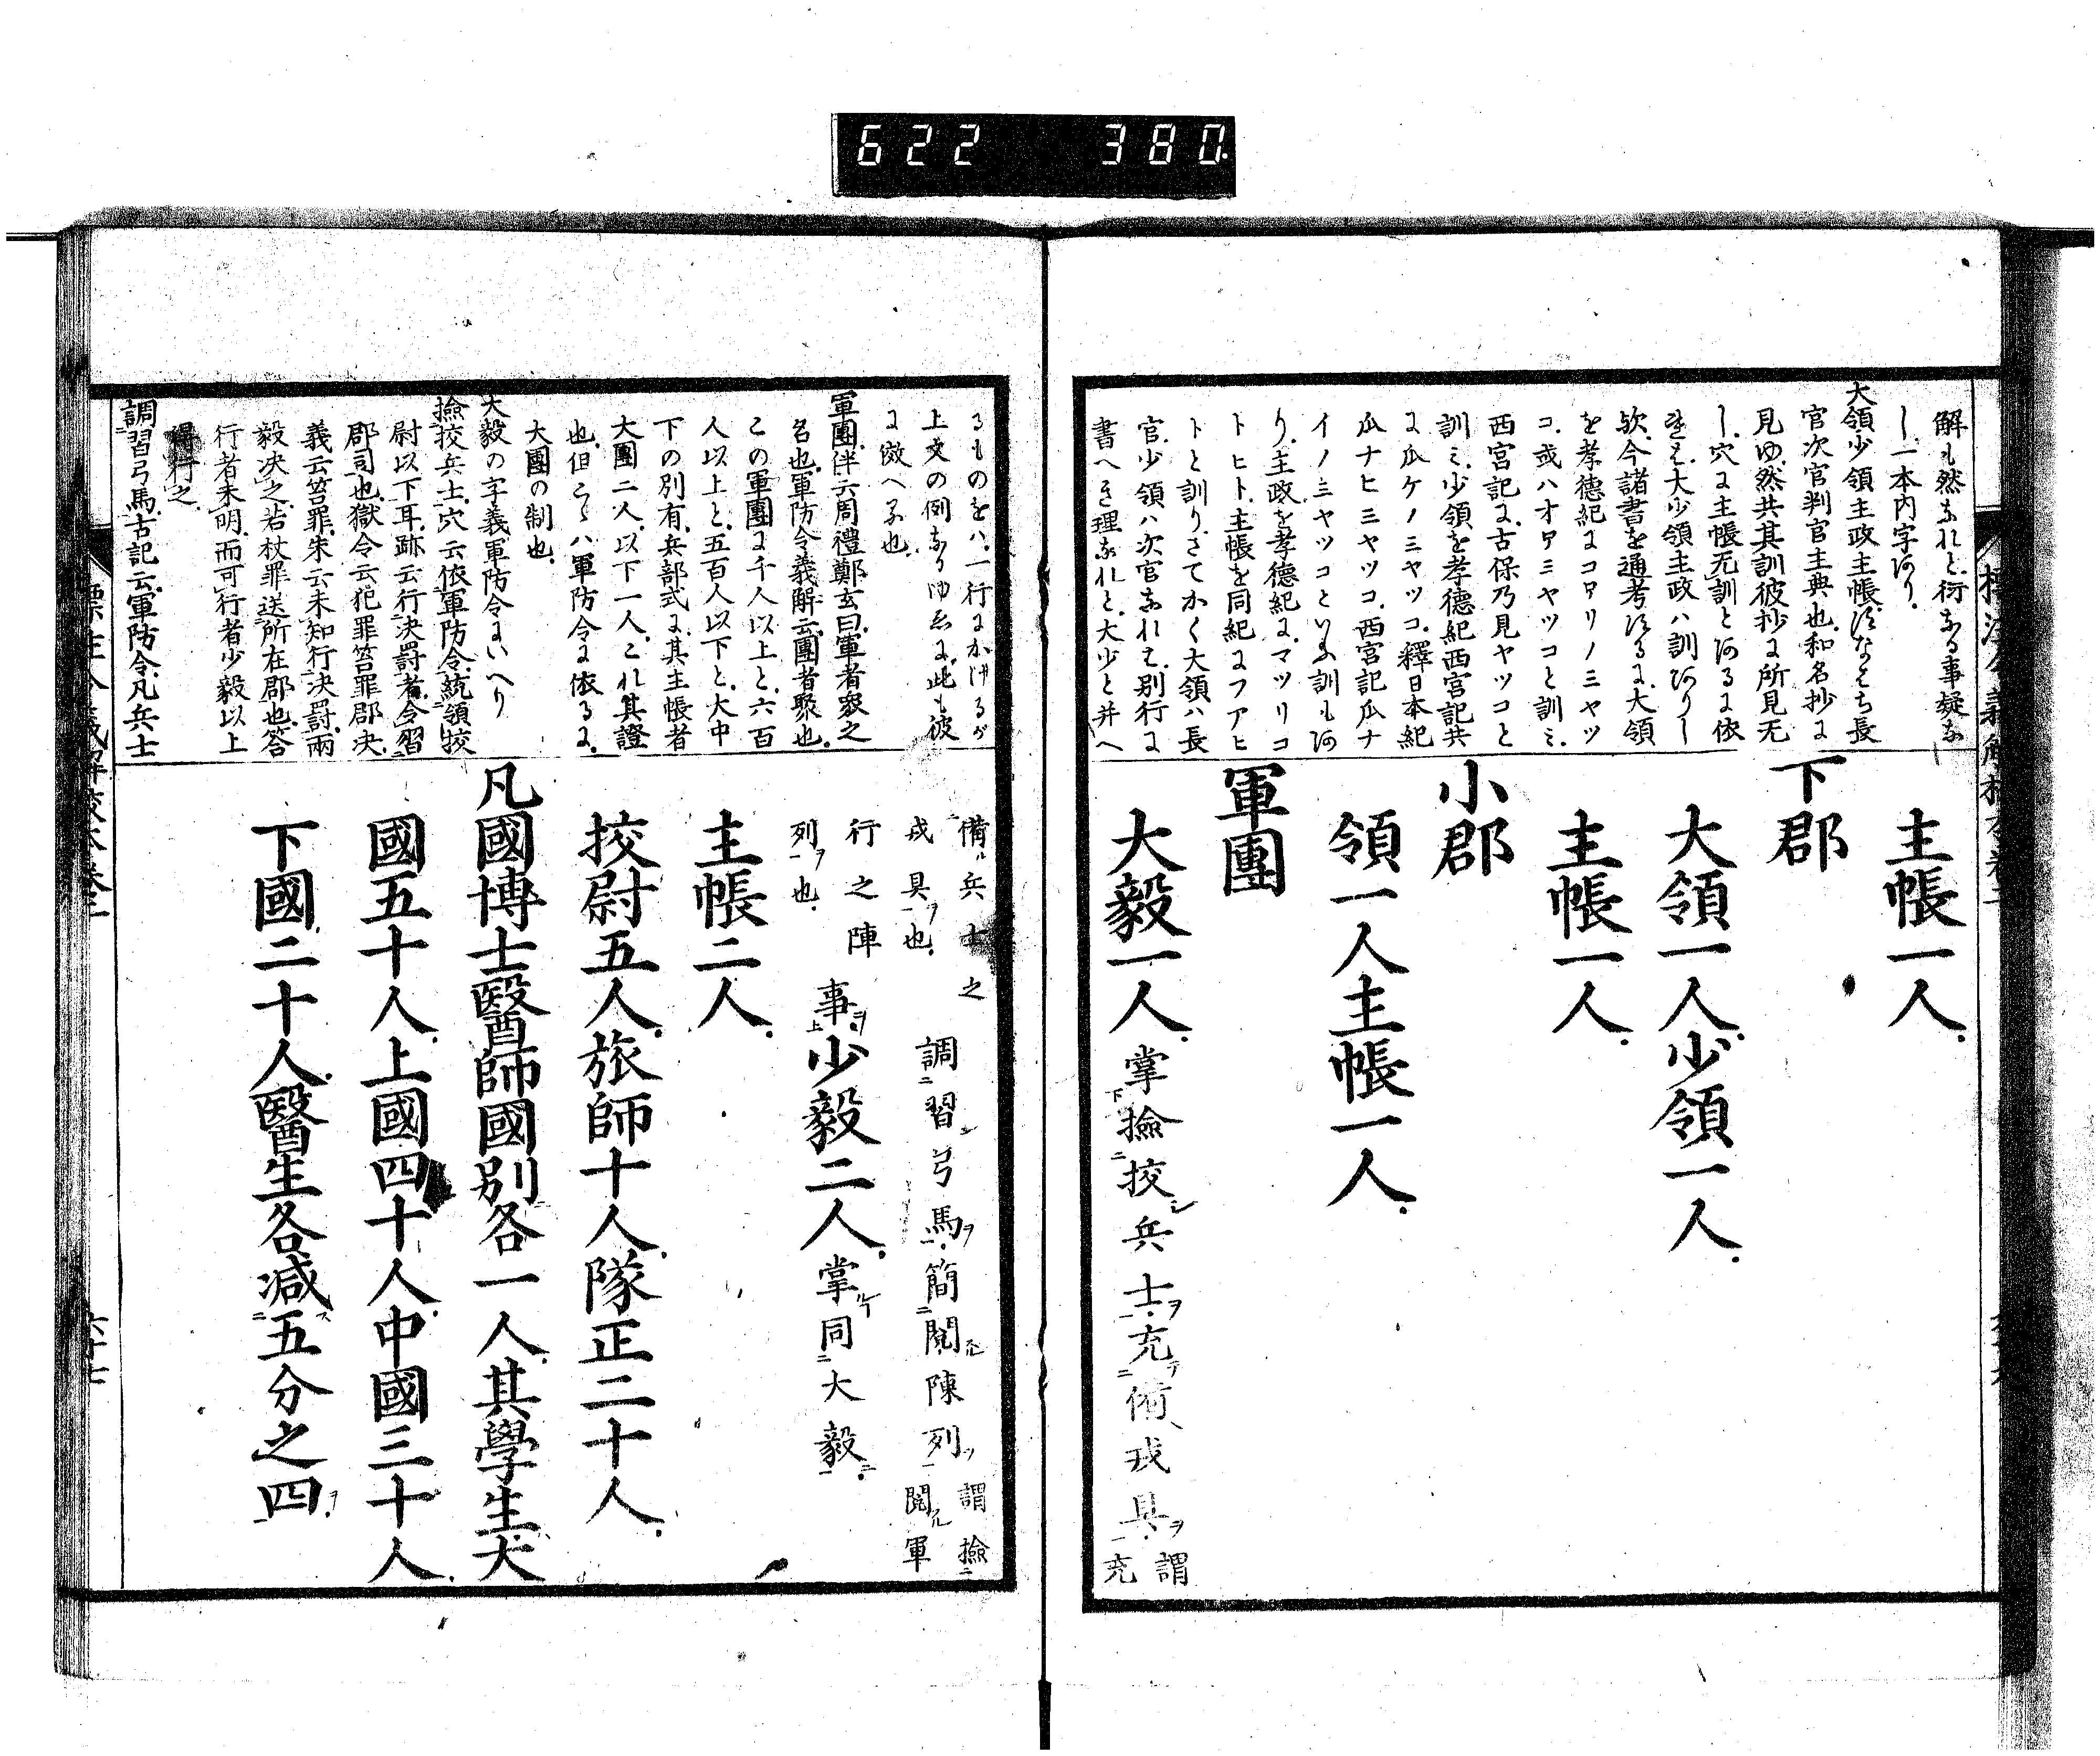 622 380
解も然なれど衍なる事疑な
し一本内字あり
大領少領主政主帳すなはち長
官次官判官主典也和名抄に
見ゆ然共其訓彼抄に所見无
し穴に主帳无訓とあるに依
大少領主政ハ訓ありし
歟今諸書を通考するに大領
を孝德紀にコヲリノミヤツ
コ或ハオホミヤツコと訓ミ
西宮記に古保乃見ヤツコと
訓ミ少領を孝德紀西宮記共
に瓜ケノミヤツコ釋日本紀
瓜ナヒミヤツコ西宮記瓜ナ
イノミヤツコといふ訓もあ
り主政を孝德紀にマツリコ
トヒト主帳を同紀にフアヒ
トと訓りさてかく大領ハ長
官少領ハ次官なれば別行に
書へき理なれと大少と并へ
主帳一人
下郡
大領一人少領一人
主帳一人
小郡
領一人主帳一人
軍團
大毅一人掌撿挍兵士充備戎具謂充
るものをハ一行にかけるが
上文の例なりゆゑに此も彼
に倣へる也
軍團伴云周禮鄭玄曰軍者衆之
名也軍防令義解云團者聚也
この軍團に千人以上と六百
人以上と五百人以下と大中
下の別有兵部式に其主帳者
大團二人以下一人これ其證
也但こゝハ軍防令に依るに
大團の制也
大毅の字義軍防令にいへり
撿挍兵士穴云依軍防令統領挍
尉以下耳跡云行決罰者令習
郡司也獄令云犯罪笞罪郡決
義云笞罪朱云未知行決罰兩
毅决之若杖罪送所在郡也答
行者未明而可行者少毅以上
得行之
調習弓馬古記云軍防令凡兵士
備兵士之
戎具也
調習弓馬簡閲陳列謂撿閲軍
行之陣
列也
事少毅二人掌同大毅
主帳二人
挍尉五人旅師十人隊正二十人
凡國博士醫師國別各一人其學生大
國五十人上國四十人中國三十人
下國二十人醫生各減五分之四